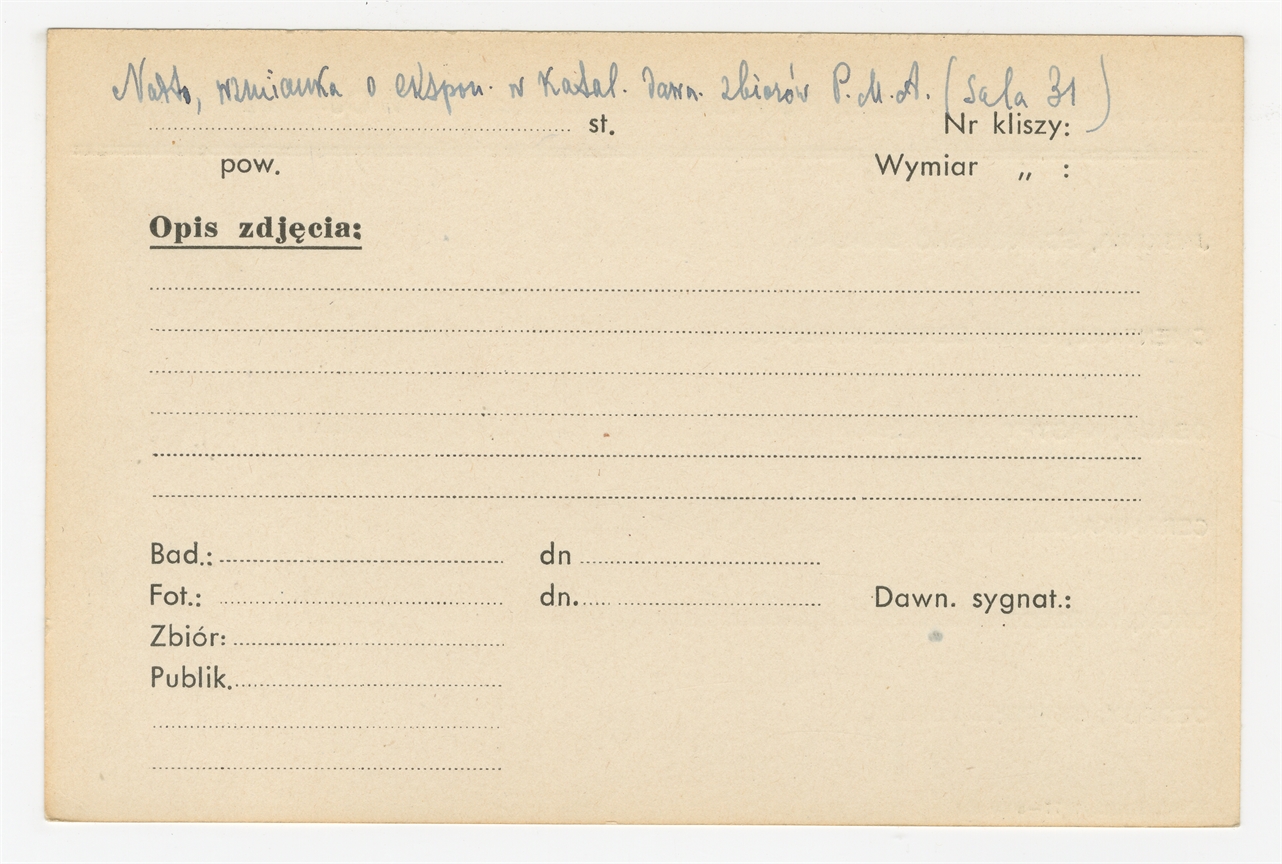 Nakło, wzmianka o ekspon. w katal. dawn. zbiorów P.M.A. (sala 31)
st. Nr kliszy:
pow. Wymiar „ :
Opis zdjęcia:
Bad.: dn
Fot.: dn. Dawn. sygnat.:
Zbiór:
Publik.